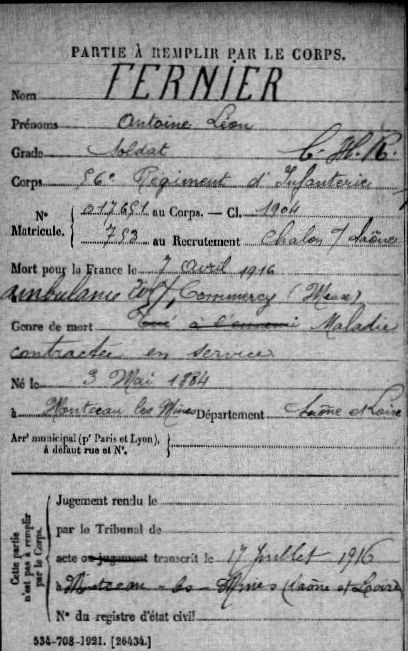 PARTIE À REMPLIR PAR LE CORPS.
Nom FERNIER
Prénoms Antoine Léon
Grade Soldat C. H. R.
Corps 56e Régiment d'Infanterie
N° Matricule. { 017651 au Corps. — Cl. 1904
753 au Recrutement Chalon s/ Saône
Mort pour la France le 7 Avril 1916
ambulance Commercy (Meuse)
Genre de mort Tué à l'ennemi Maladie
contractée en service
Né le 3 Mai 1884
à Montceau les Mines Département Saône et Loire
Arrt municipal (pr Paris et Lyon), à défaut rue et N°.
Cette partie n'est pas à remplir par le Corps.
Jugement rendu le
par le Tribunal de
acte ou jugement transcrit le 17 Juillet 1916
à Montceau-les-Mines (Saône et Loire)
N° du registre d'état civil
534-708-1921. [26434.]